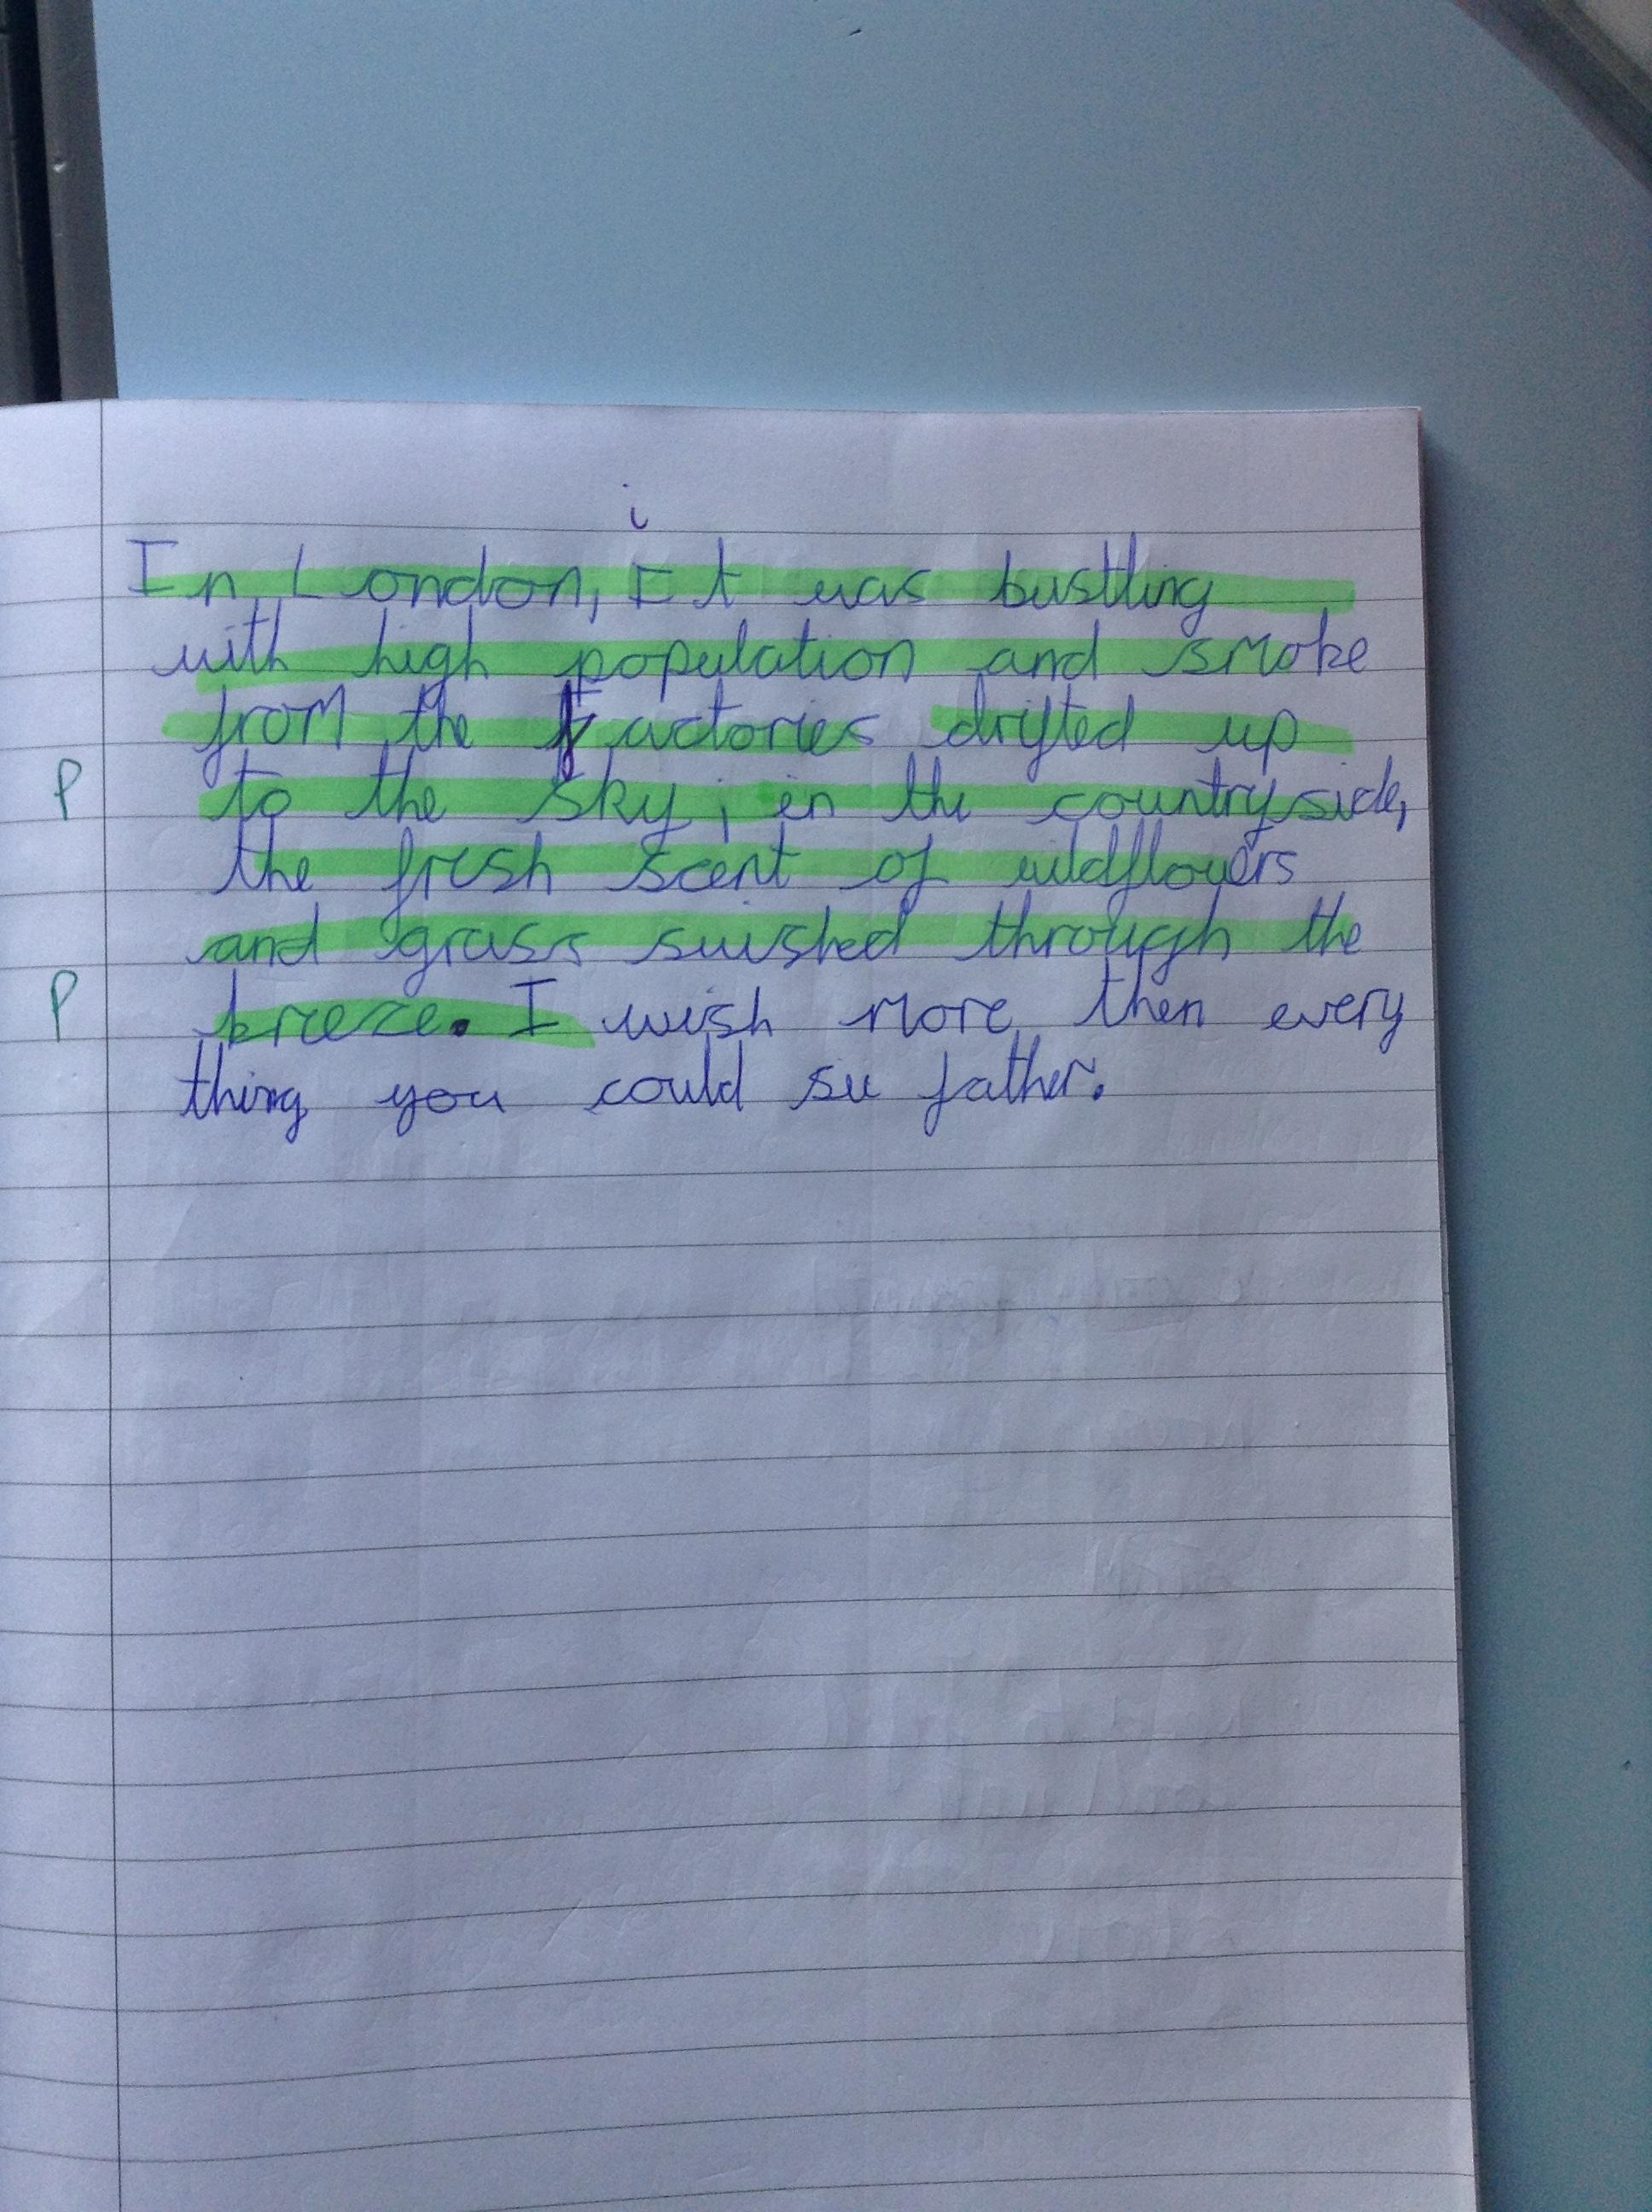 i
In London, It was bustling
with high population and smoke
from the factories drifted up
P to the sky; in the countryside,
the fresh scent of wildflowers
and grass swished through the
P breeze. I wish more then every
thing you could see father.